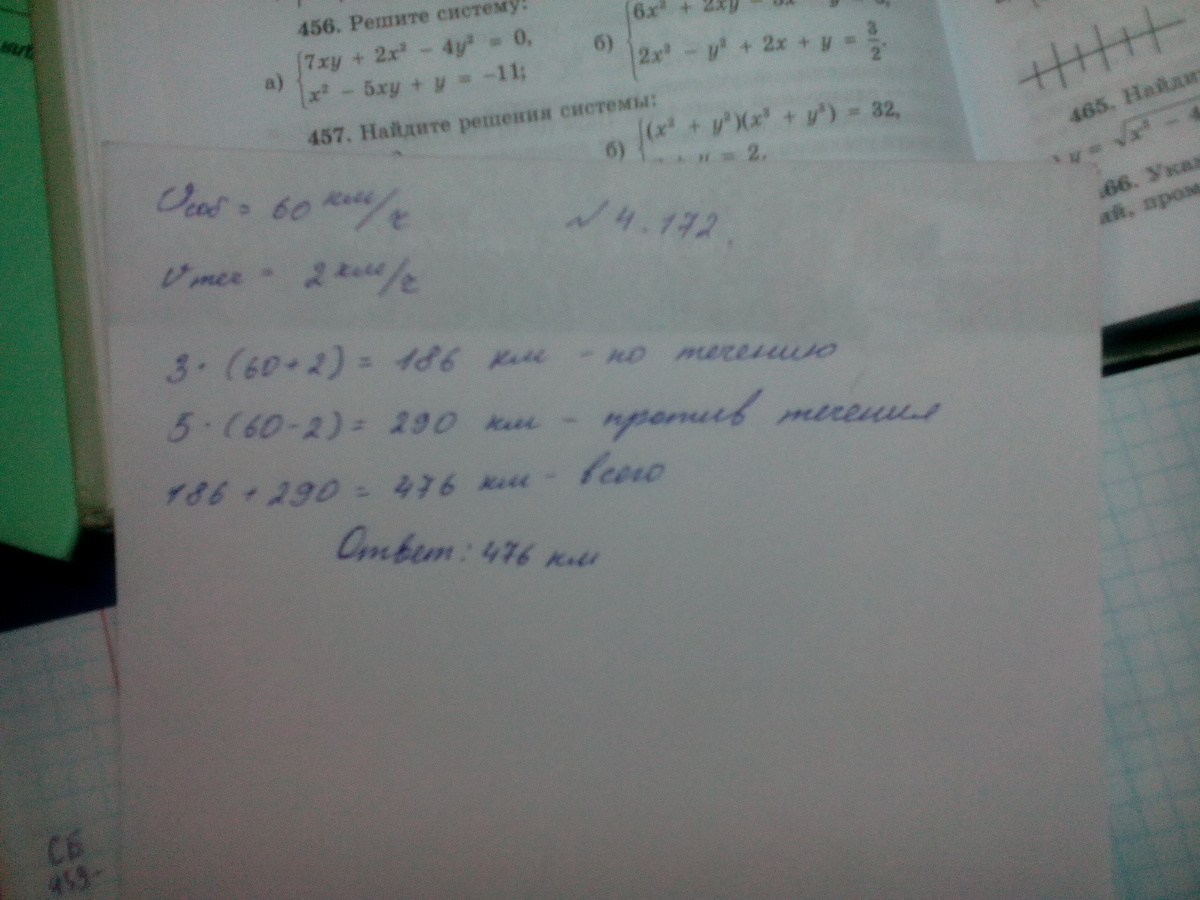 456. Решите систему:
а) 7xy + 2x² − 4y² = 0,
x² − 5xy + y = −11;
б)
2x² − y² + 2x + y = 3/2.
457. Найдите решения системы:
б)
= 2.
465.
y = √x² − 4
66.
ай,
Vсоб = 60 км/ч
№ 4.172.
Vтеч = 2 км/ч
3·(60+2) = 186 км - по течению
5·(60-2) = 290 км - против течения
186 + 290 = 476 км - всего
Ответ: 476 км
СБ